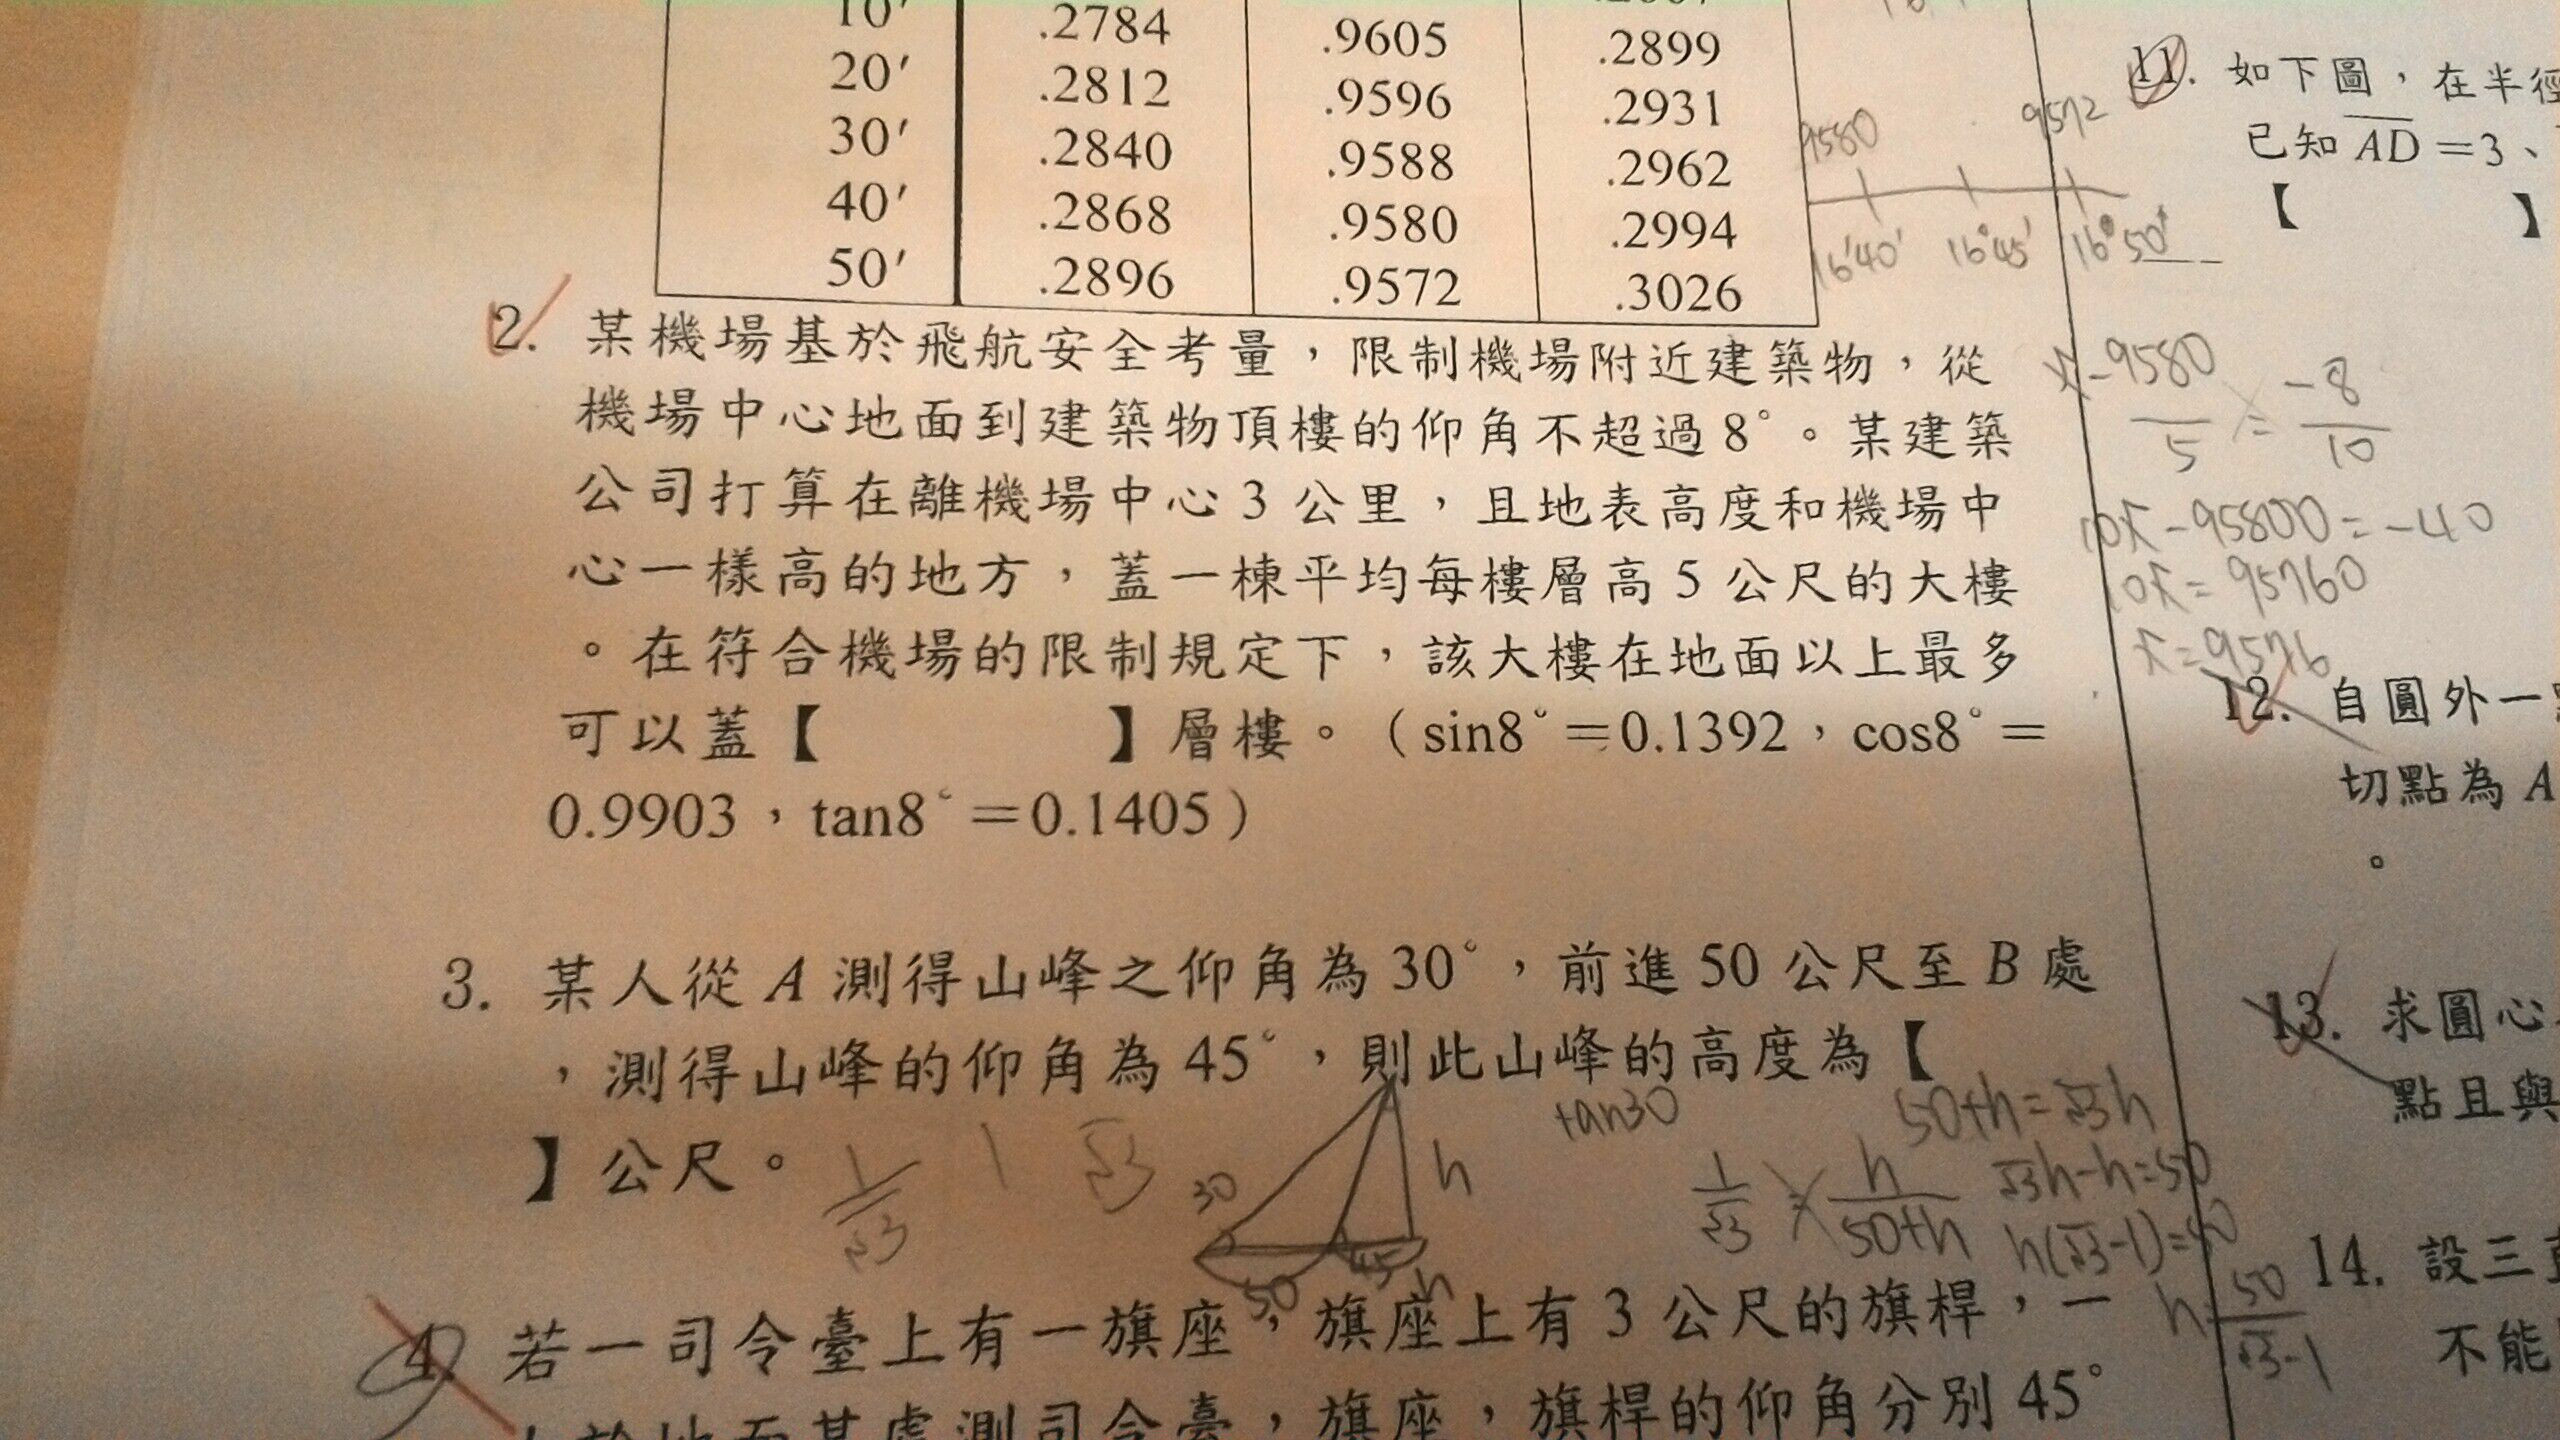 10′ .2784 .9605
20′ .2812 .9596 .2899
30′ .2840 .9588 .2931
40′ .2868 .9580 .2962
50′ .2896 .9572 .2994
.3026
9580 9572
16°40′ 16°45′ 16°50′
2. 某機場基於飛航安全考量，限制機場附近建築物，從
機場中心地面到建築物頂樓的仰角不超過8°。某建築
公司打算在離機場中心3公里，且地表高度和機場中
心一樣高的地方，蓋一棟平均每樓層高5公尺的大樓
。在符合機場的限制規定下，該大樓在地面以上最多
可以蓋【 】層樓。（sin8°＝0.1392，cos8°＝
0.9903，tan8°＝0.1405）
3. 某人從A測得山峰之仰角為30°，前進50公尺至B處
，測得山峰的仰角為45°，則此山峰的高度為【
】公尺。
1/√3 1 √3
30 h
50 45 h
tan30
1/√3 = h/50+h
50+h=√3h
√3h-h=50
h(√3-1)=50
h=50/√3-1
4. 若一司令臺上有一旗座，旗座上有3公尺的旗桿，一
人於地面某處測司令臺，旗座，旗桿的仰角分別45°
11. 如下圖，在半徑
已知AD＝3、
【 】
x-9580/5 = -8/10
10x-95800=-40
10x=95760
x=9576
12. 自圓外一
切點為A
。
13. 求圓心
點且與
14. 設三
不能